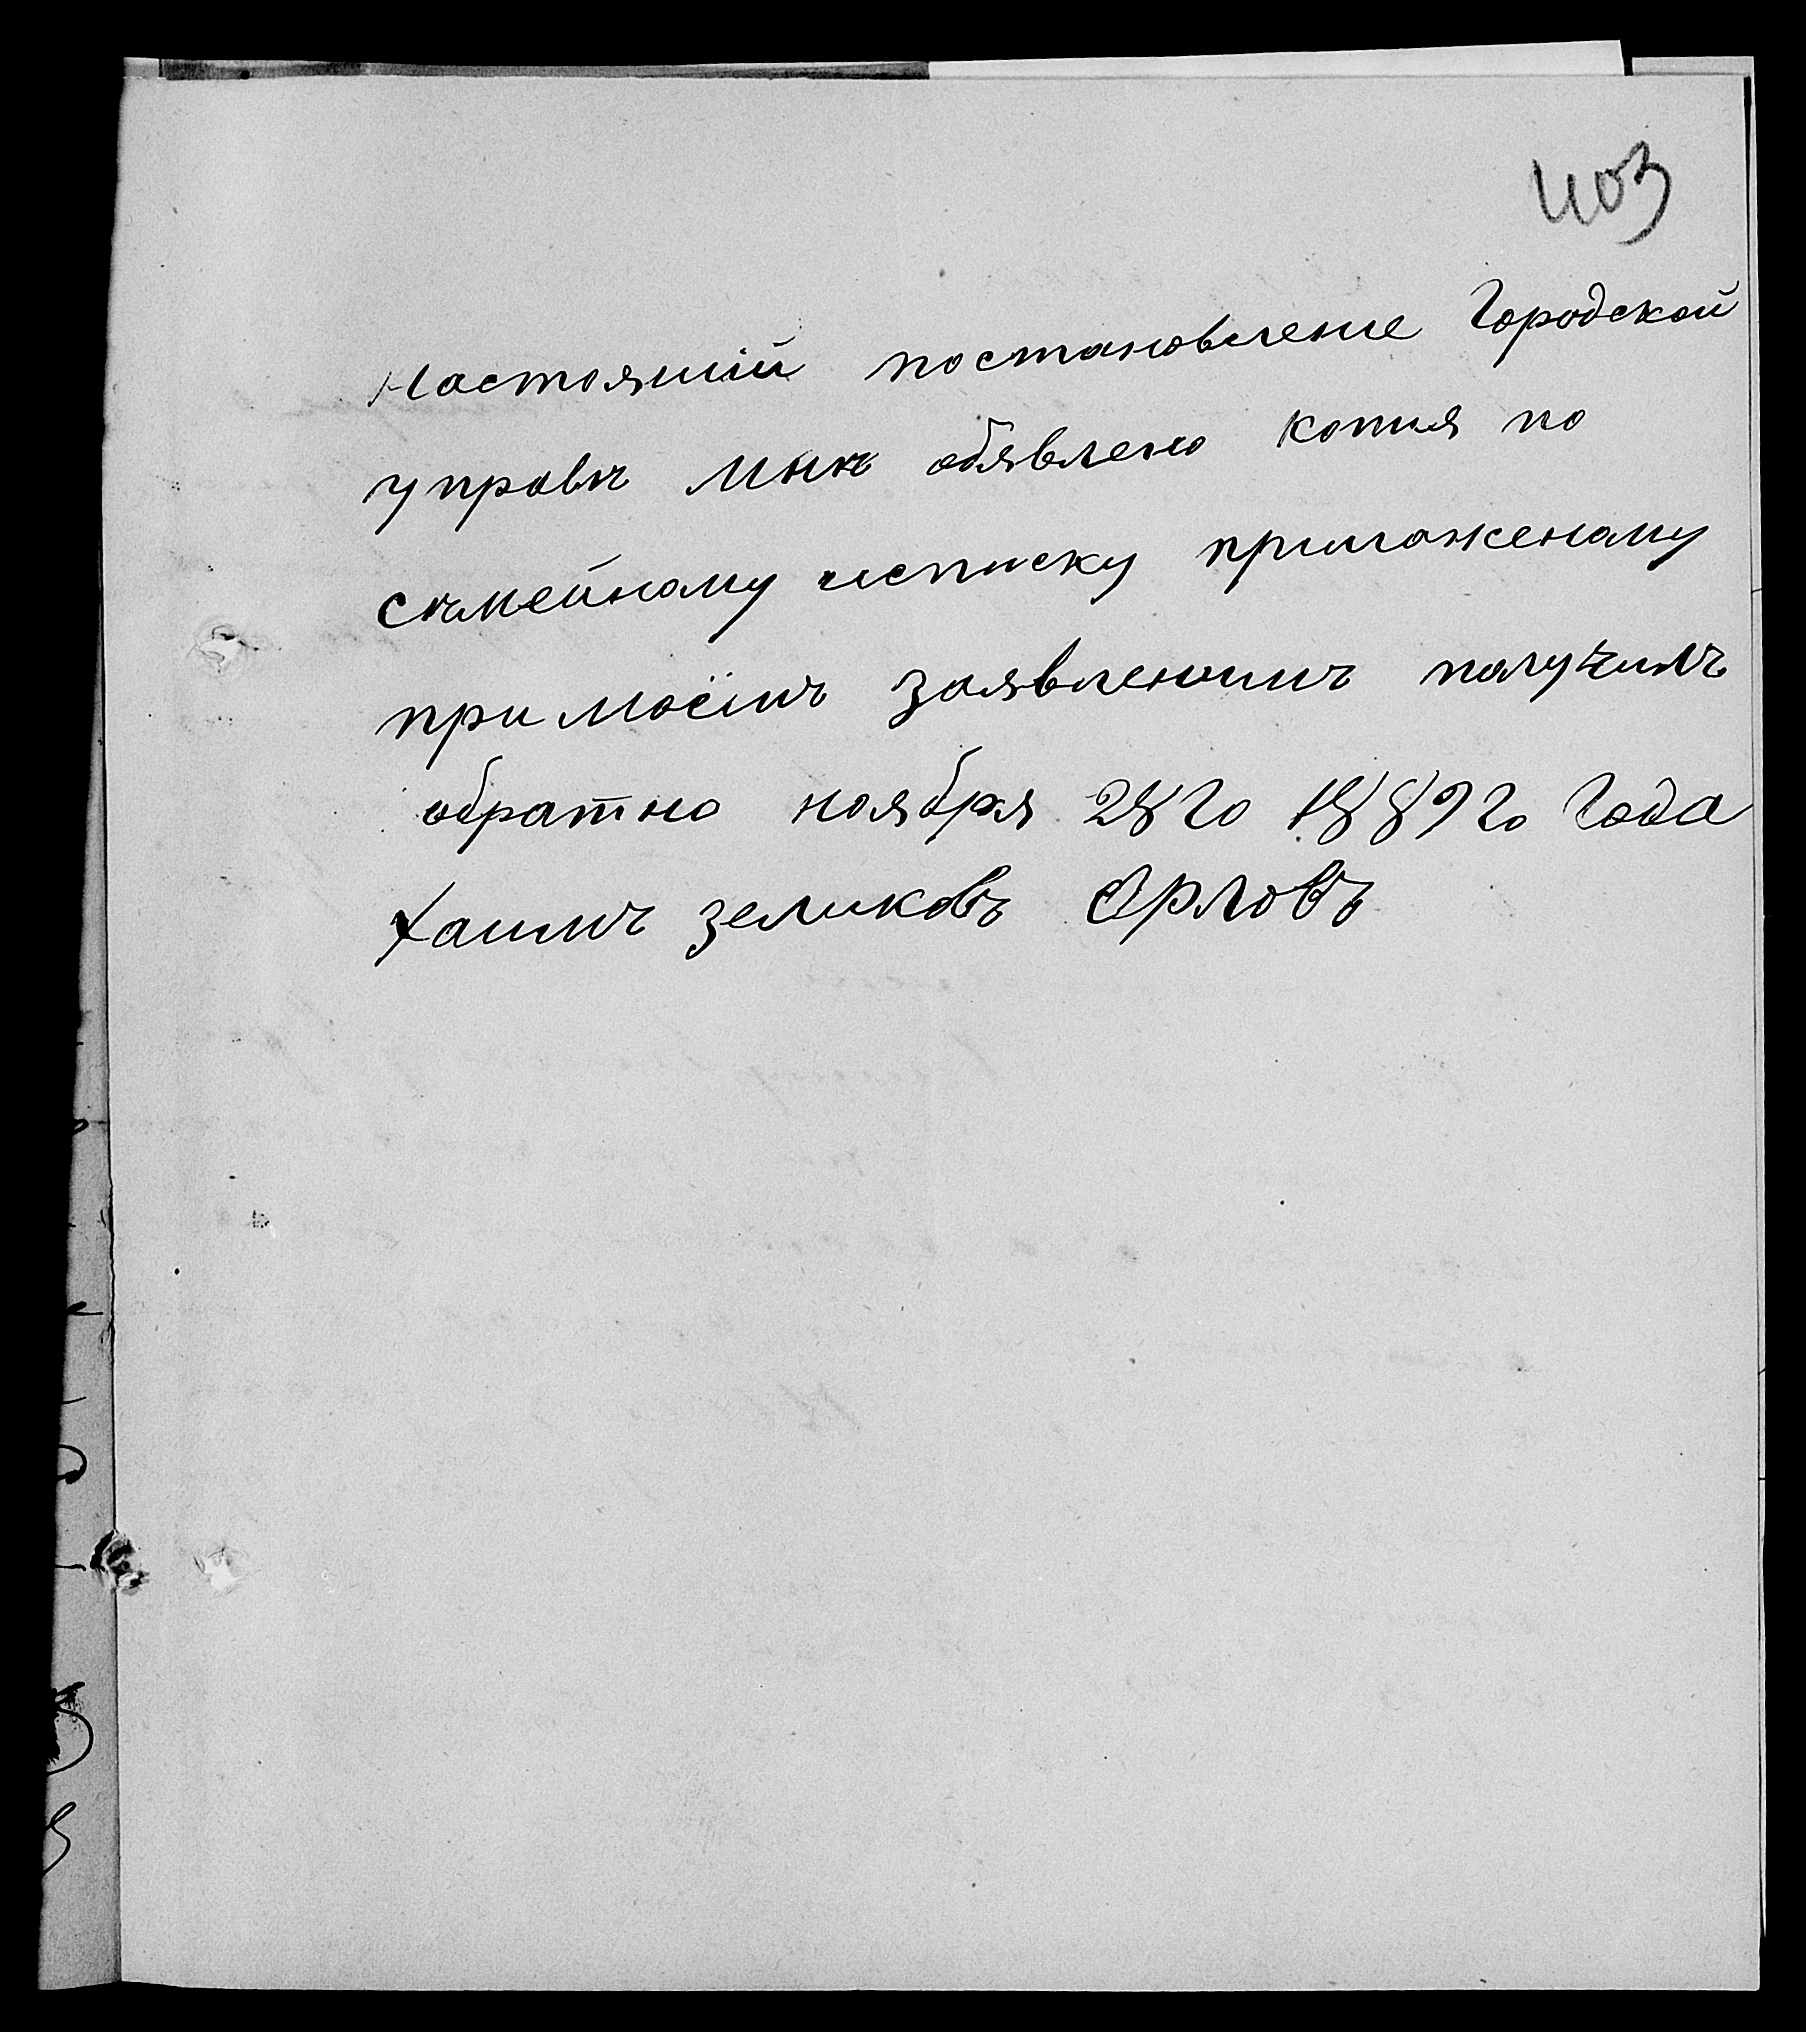 403
Настоящій постановление Городской
управѣ мнѣ обявлено копия по
сѣмейному исписку приложеному
при моёмъ заявлениимъ получилъ
обратно ноября 28 го 1889 го Года
Хаимъ зеликовъ Орловъ